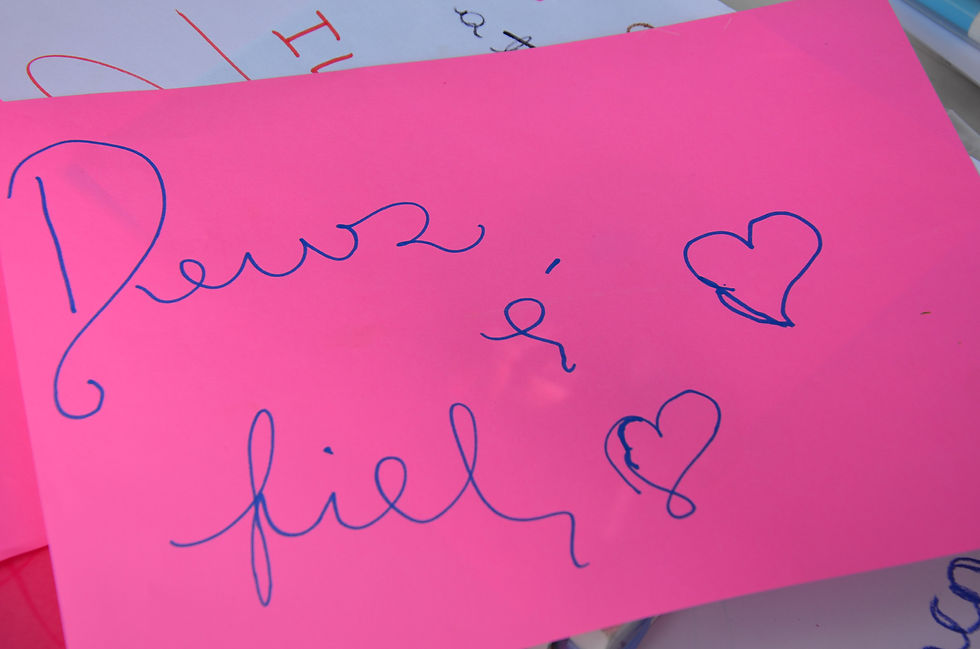 Deus
é
fiel